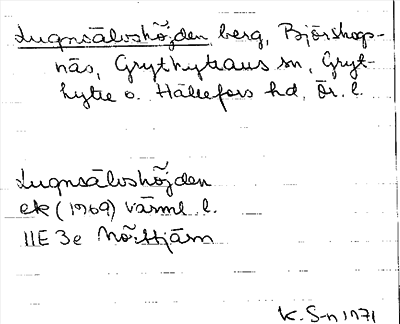 Lugnsälvshöjden, berg, Björskogs-
näs, Grythyttans sn, Gryt-
hytte o. Hällefors hd, Ör. l.
Lugnsälvshöjden
ek (1969) Värml l.
11E 3e
K. S-n 1971